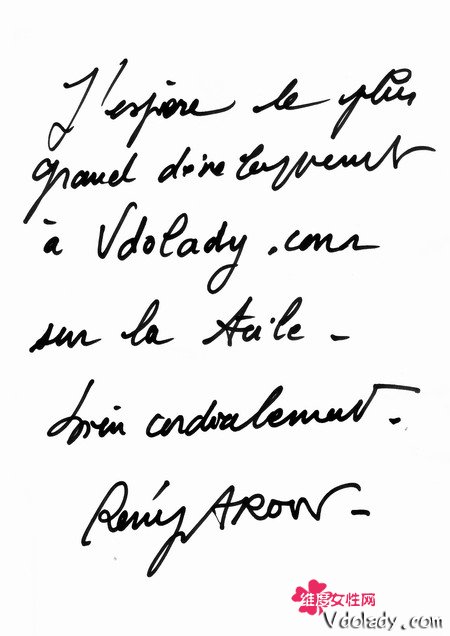 J'espère le plus
grand développement
à Vdolady.com
sur la toile -
bien cordialement -
Rémy ARON -
维度女性网
Vdolady.com